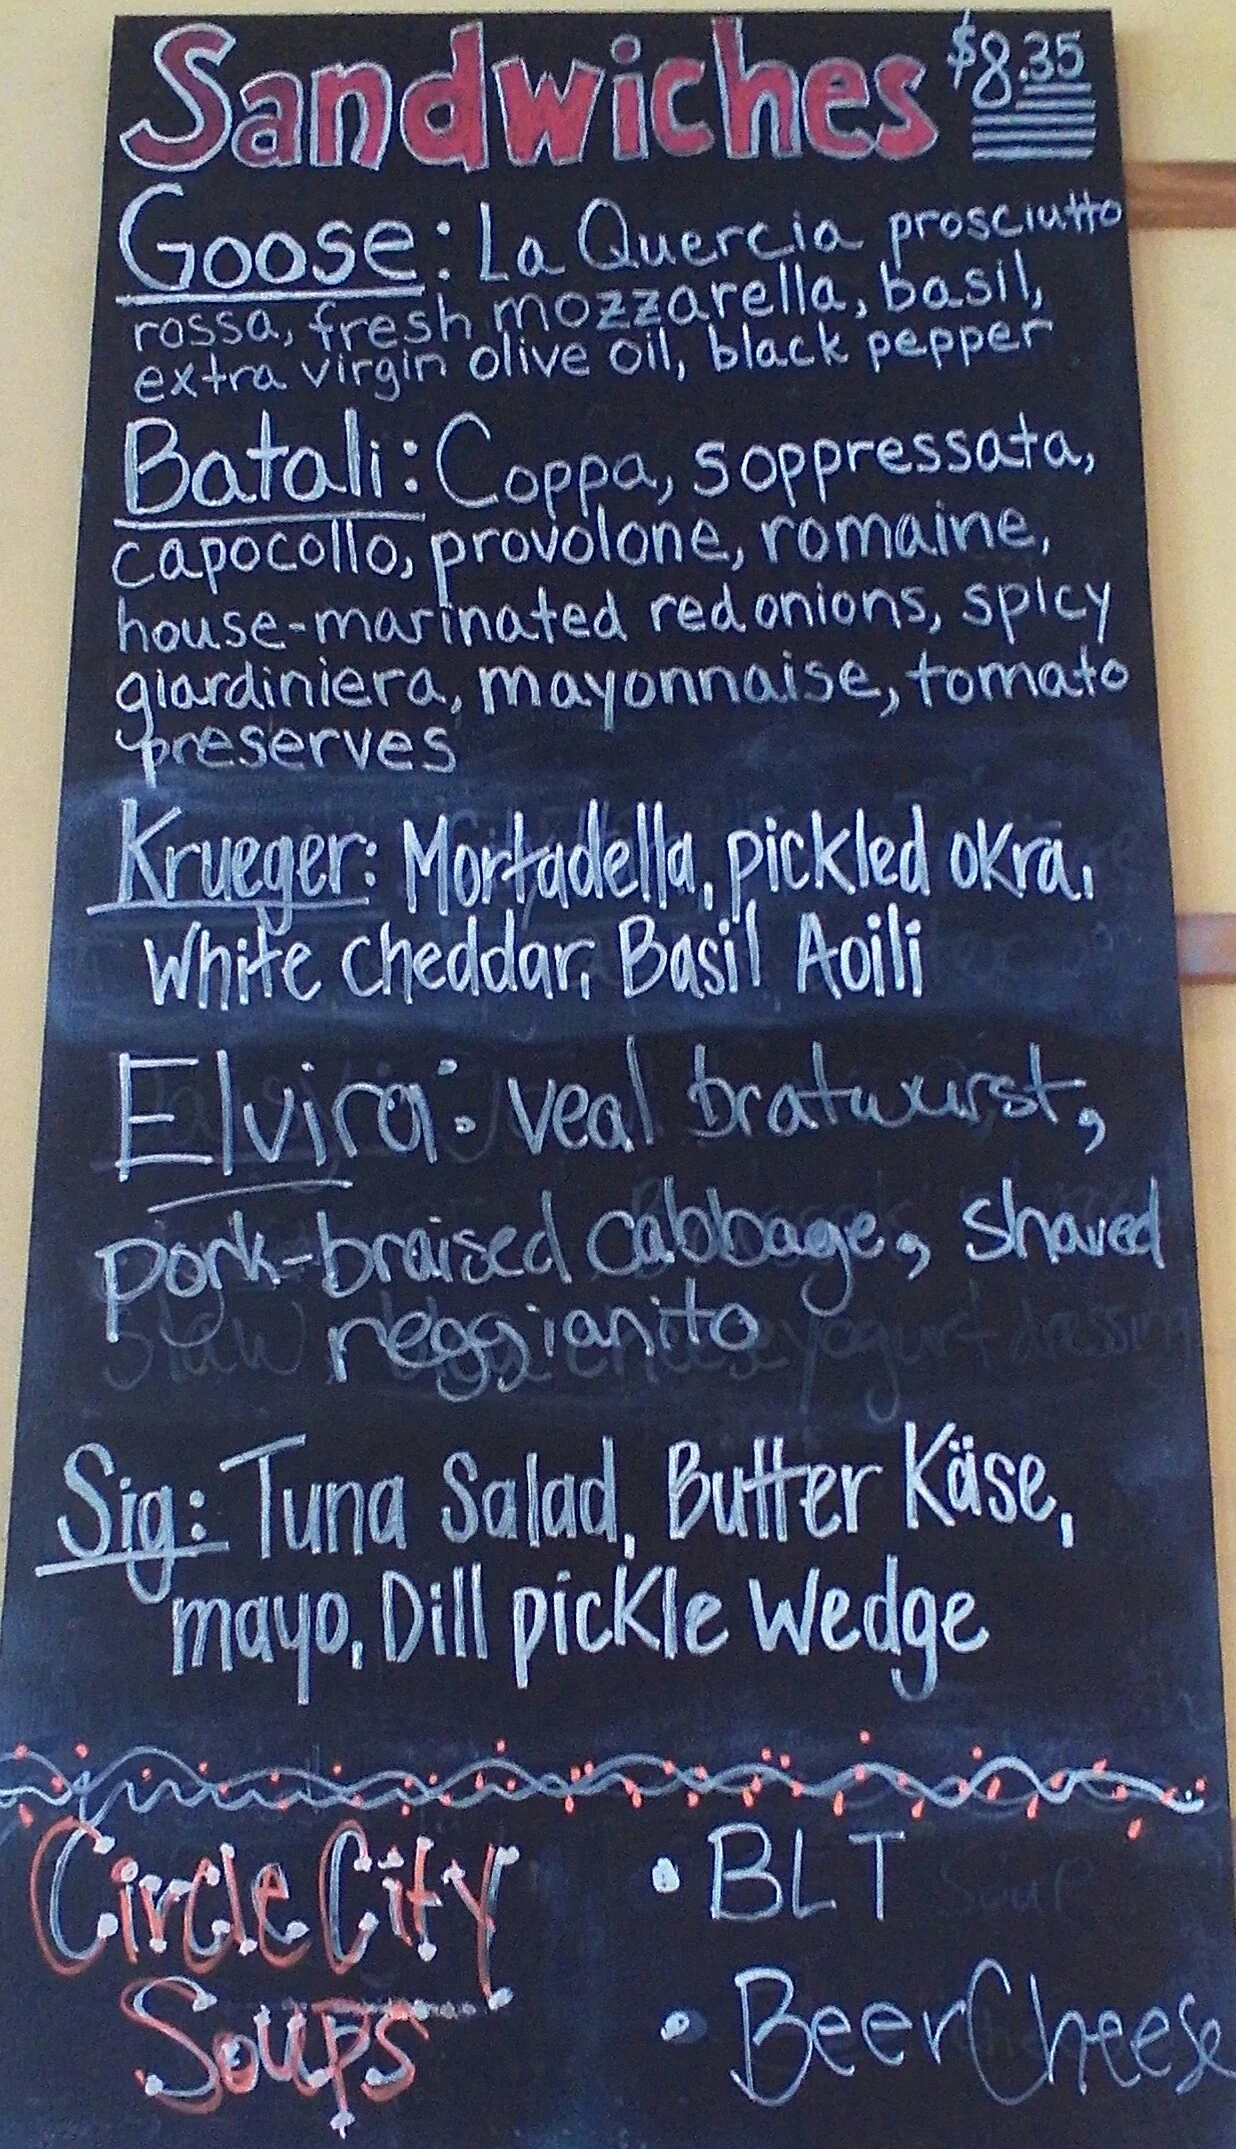 Sandwiches $8.35
Goose: La Quercia prosciutto
rossa, fresh mozzarella, basil,
extra virgin olive oil, black pepper
Batali: Coppa, soppressata,
capocollo, provolone, romaine,
house-marinated red onions, spicy
giardiniera, mayonnaise, tomato
preserves
Krueger: Mortadella, pickled okra,
White cheddar, Basil Aoili
Elvira: veal bratwurst,
pork-braised cabbage, shaved
reggianito
Sig: Tuna Salad, Butter Käse,
mayo, Dill pickle Wedge
Circle City
Soups
• BLT
• Beer Cheese